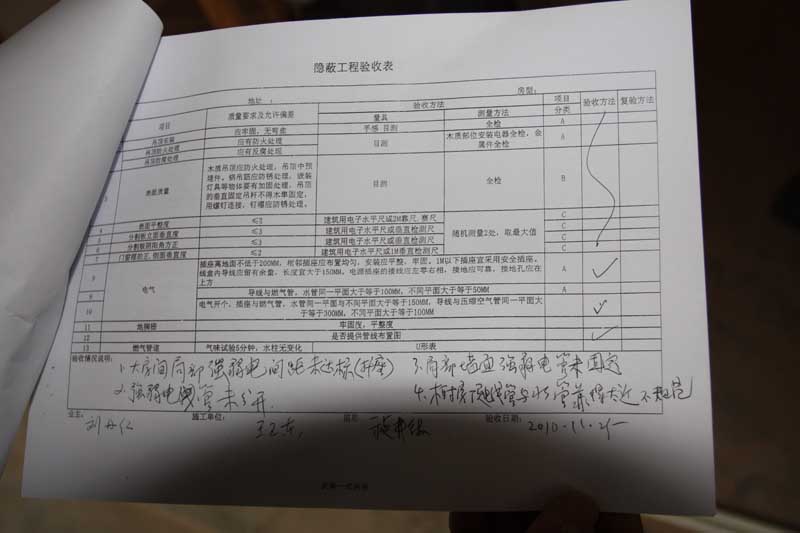 隐蔽工程验收表
地址：
房型：
项目 质量要求及允许偏差 验收方法 项目分类 验收方法 复验方法
量具 测量方法
吊顶安装 应牢固，无弯曲 手感 目测 全检 A
吊顶防火处理 应有防火处理 目测 木质部位安装电器全检，金属件全检 A
吊顶防腐处理 应有反腐处理
3 表面质量 木质吊顶应防火处理，吊顶中预埋件。钢吊筋应防锈处理，嵌装灯具等物体要有加固处理，吊顶的垂直固定吊杆不得木榫固定，用螺钉连接，钉帽应防锈处理。 目测 全检 B
4 表面平整度 ≤2 建筑用电子水平尺或2M靠尺，塞尺 随机测量2处，取最大值 C
5 分割板立面垂直度 ≤3 建筑用电子水平尺或垂直检测尺 C
6 分割板阴阳角方正 ≤3 建筑用电子水平尺或垂直检测尺 C
7 门窗框的正，侧面垂直度 ≤2 建筑用电子水平尺或1M垂直检测尺 C
8 电气 插座离地面不低于200MM，相邻插座应布置均匀，安装应平整，牢固。1M以下插座宜采用安全插座。线盒内导线应留有余量，长度宜大于150MM，电源插座的接线应左零右相，接地应可靠，接地孔应在上方 A
9 导线与燃气管，水管同一平面大于等于100MM，不同平面大于等于50MM A
10 电气开个，插座与燃气管，水管同一平面与不同平面大于等于150MM，导线与压缩空气管同一平面大于等于300MM，不同平面大于等于100MM
11 地搁栅 牢固度，平整度
12 是否提供管线布置图
13 燃气管道 气味试验5分钟，水柱无变化 U形表
验收情况说明：
1.大房间局部强弱电间距未达标(插座) 3.局部墙面强弱电管未固定
2.强弱电 管未分开. 4.
业主： 施工单位： 验收日期：2010.11.2